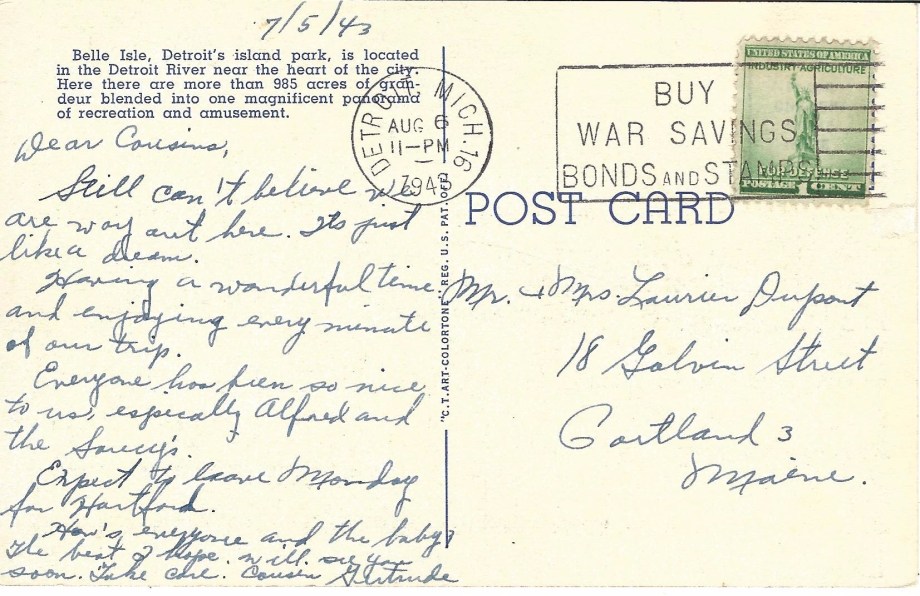 7/5/43
Belle Isle, Detroit's island park, is located
in the Detroit River near the heart of the city.
Here there are more than 985 acres of gran-
deur blended into one magnificent panorama
of recreation and amusement.
Dear Cousins,
Still can't believe we
are way out here. Its just
like a dream.
Having a wonderful time
and enjoying every minute
of our trip.
Everyone has been so nice
to us, especially Alfred and
the
Expect to leave Monday
for Hartford.
How's everyone and the baby?
The best I hope. Will see you
soon. Take care. Cousin Gertrude
"C.T. ART-COLORTONE" REG. U.S. PAT. OFF.
DETROIT, MICH. 16
AUG 6
11-PM
1943
BUY
WAR SAVINGS
BONDS AND STAMPS
UNITED STATES OF AMERICA
INDUSTRY AGRICULTURE
FOR DEFENSE
POSTAGE 1 CENTS
POST CARD
Mr. & Mrs. Laurier Dupont
18 Galvin Street
Portland 3
Maine.